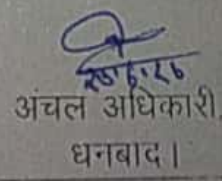 अंचल अधिकारी,
धनबाद।